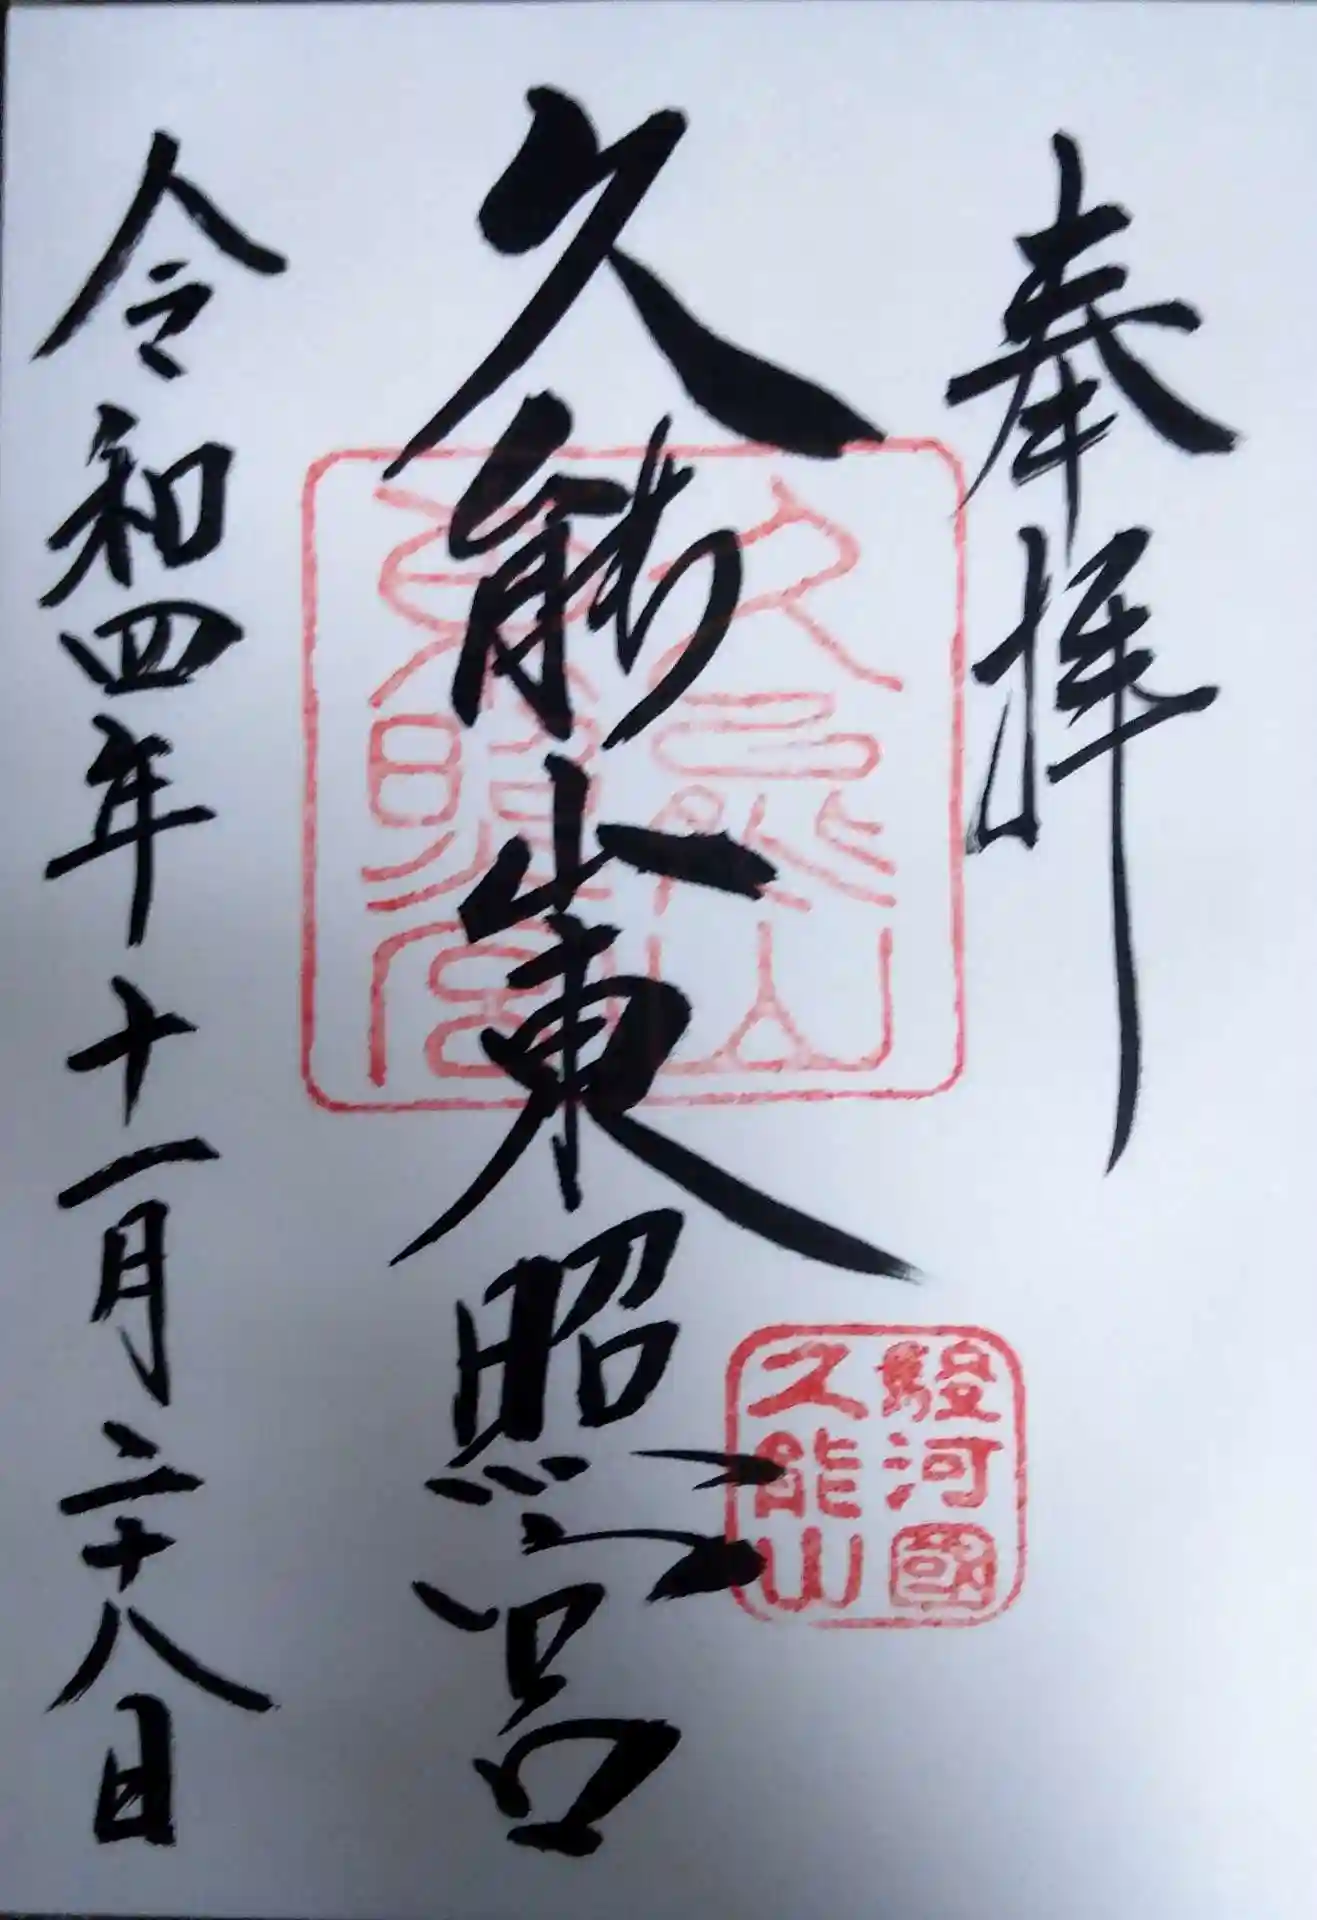 奉拝
駿河國
久能山
久能山東照宮
久能山
東照宮
令和四年十一月二十八日